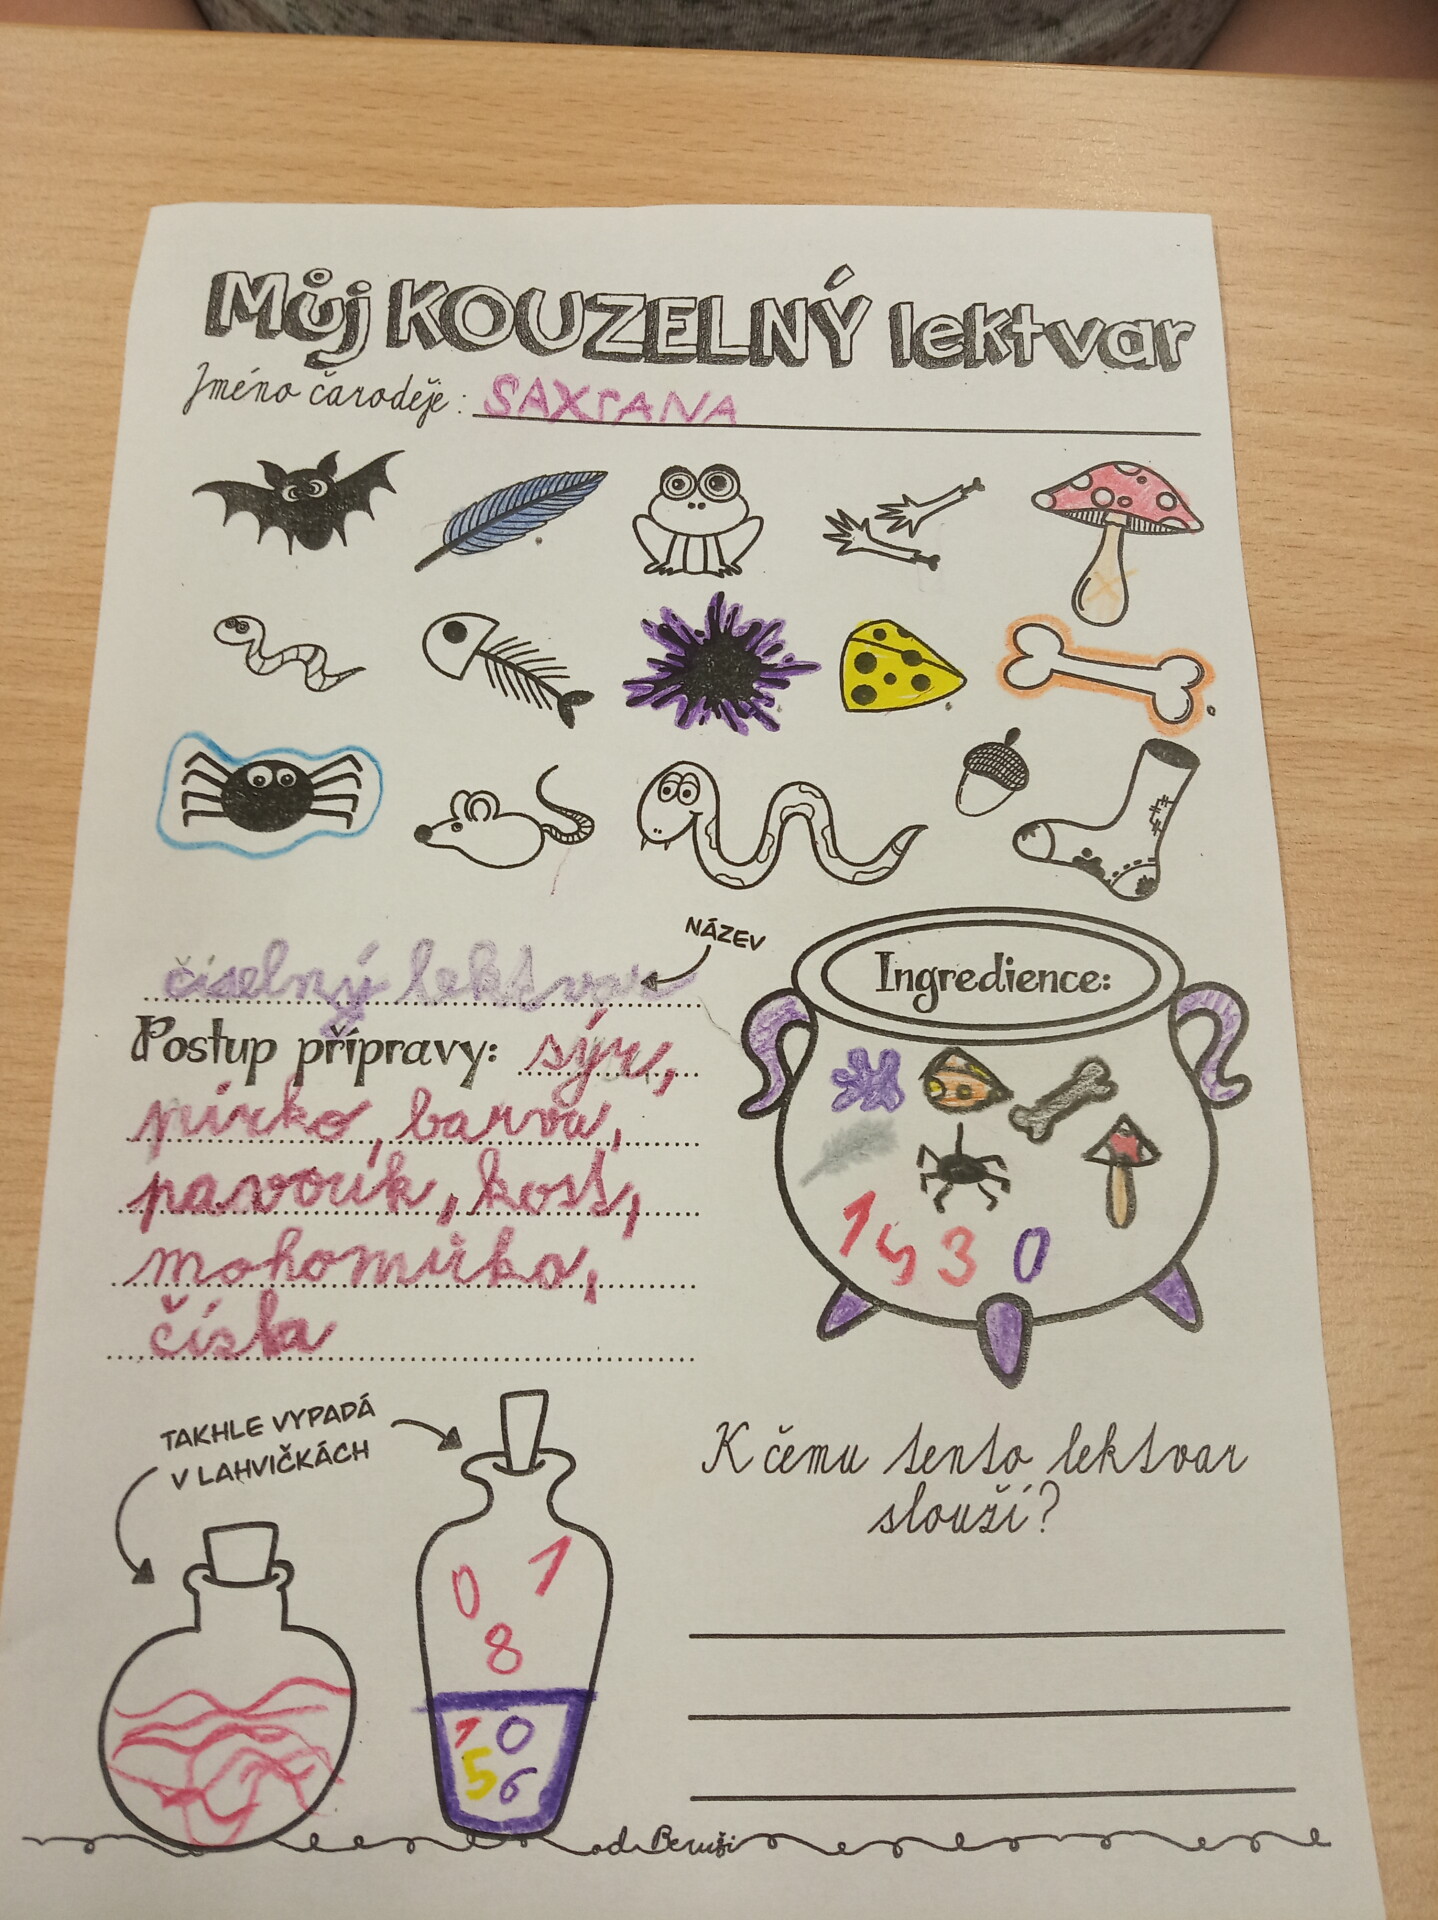 Můj KOUZELNÝ lektvar
Jméno čaroděje: SAXANA
NÁZEV
číselný lektvar
Ingredience:
Postup přípravy: sýr,
pírko, barva,
pavouk, kost,
mohomůrka,
čísla
1 5 3 0
TAKHLE VYPADÁ
V LAHVIČKÁCH
K čemu tento lektvar
slouží?
0 1
8
1 0
5 6
od Beruši